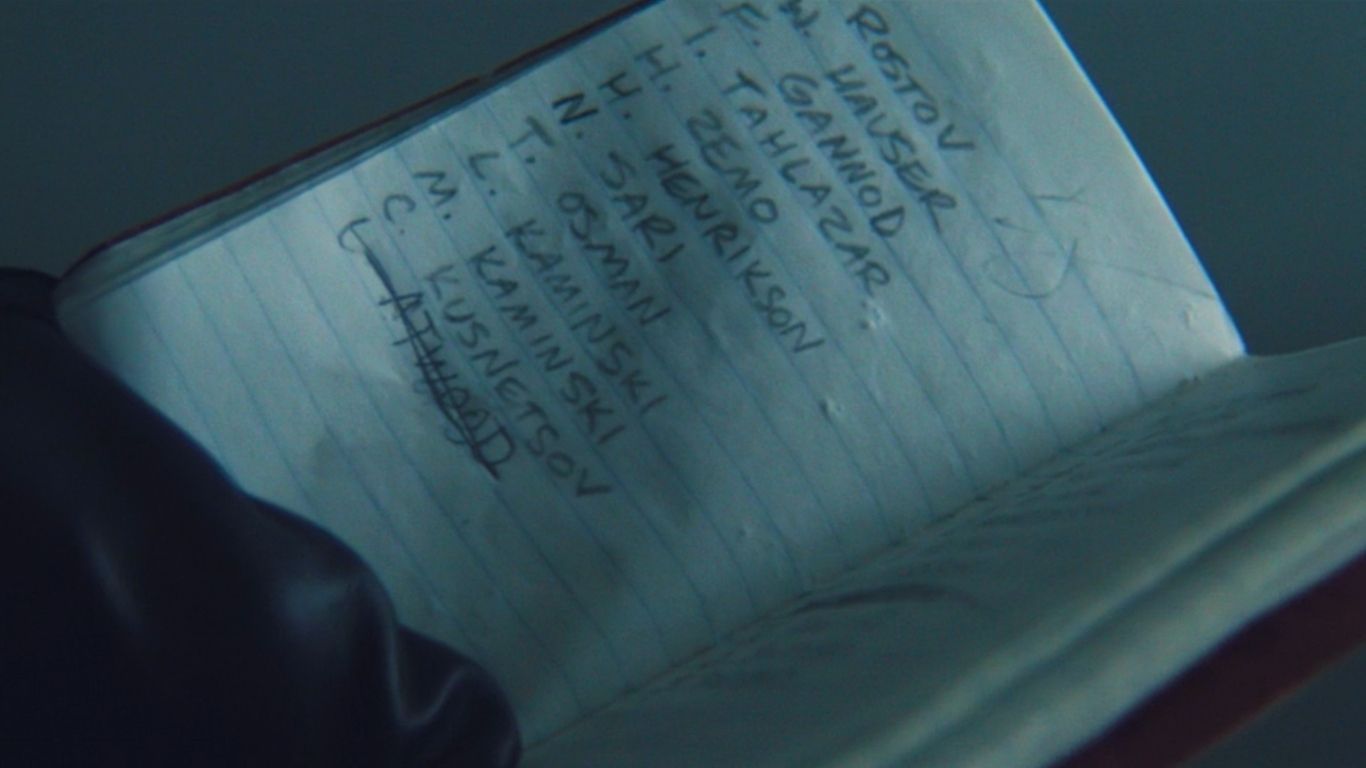 ROSTOV
W. HAUSER
F. GANNOD
I. TAHLAZAR
H. ZEMO
H. HENRIKSON
N. SARI
T. OSMAN
L. KAMINSKI
M. KAMINSKI
C. KUSNETSOV
L ATWOOD